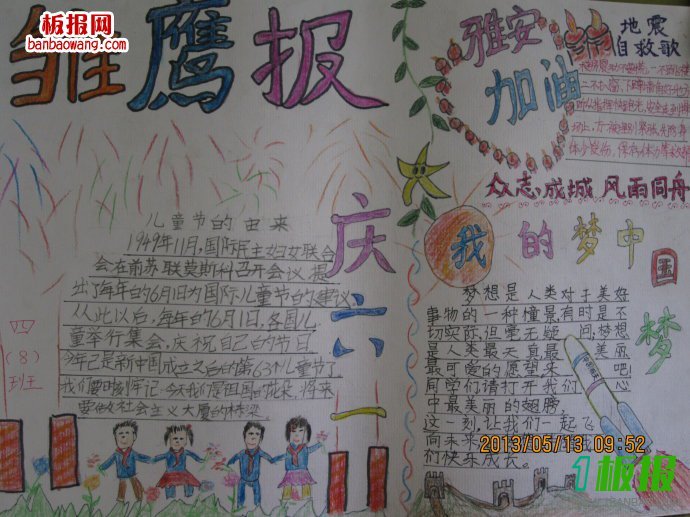 板报网
banbaowang.com
雏鹰报
雅安
加油
地震
自救歌
众志成城 风雨同舟
儿童节的由来
1949年11月,国际民主妇女联合
会在前苏联莫斯科召开会议,提
出了每年的6月1日为国际儿童节的建议
从此以后,每年的6月1,各国儿
童举行集会,庆祝自己的节日
今年已是新中国成立之后的第63个儿童节了
我们要时刻牢记:今天我们是祖国的花朵,将来
要做社会主义大厦的栋梁
四
(8)
班
庆
六
一
我的梦中
国
梦
梦想是人类对于美好
事物的一种憧景,有时是不
切实际,但毫无疑问,梦想
是人类最天真最美丽
最可爱的愿望来吧!
同学们请打开我们心
中最美丽的翅膀
这一刻,让我们一起飞
向未来
们快乐成长。
2013/05/13 09:52
1板报